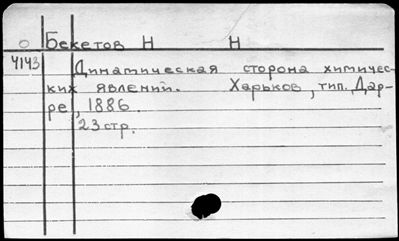 О Бекетов Н Н
4143 Динамическая сторона химичес-
ких явлений. Харьков, тип. Дар-
ре, 1886.
23 стр.